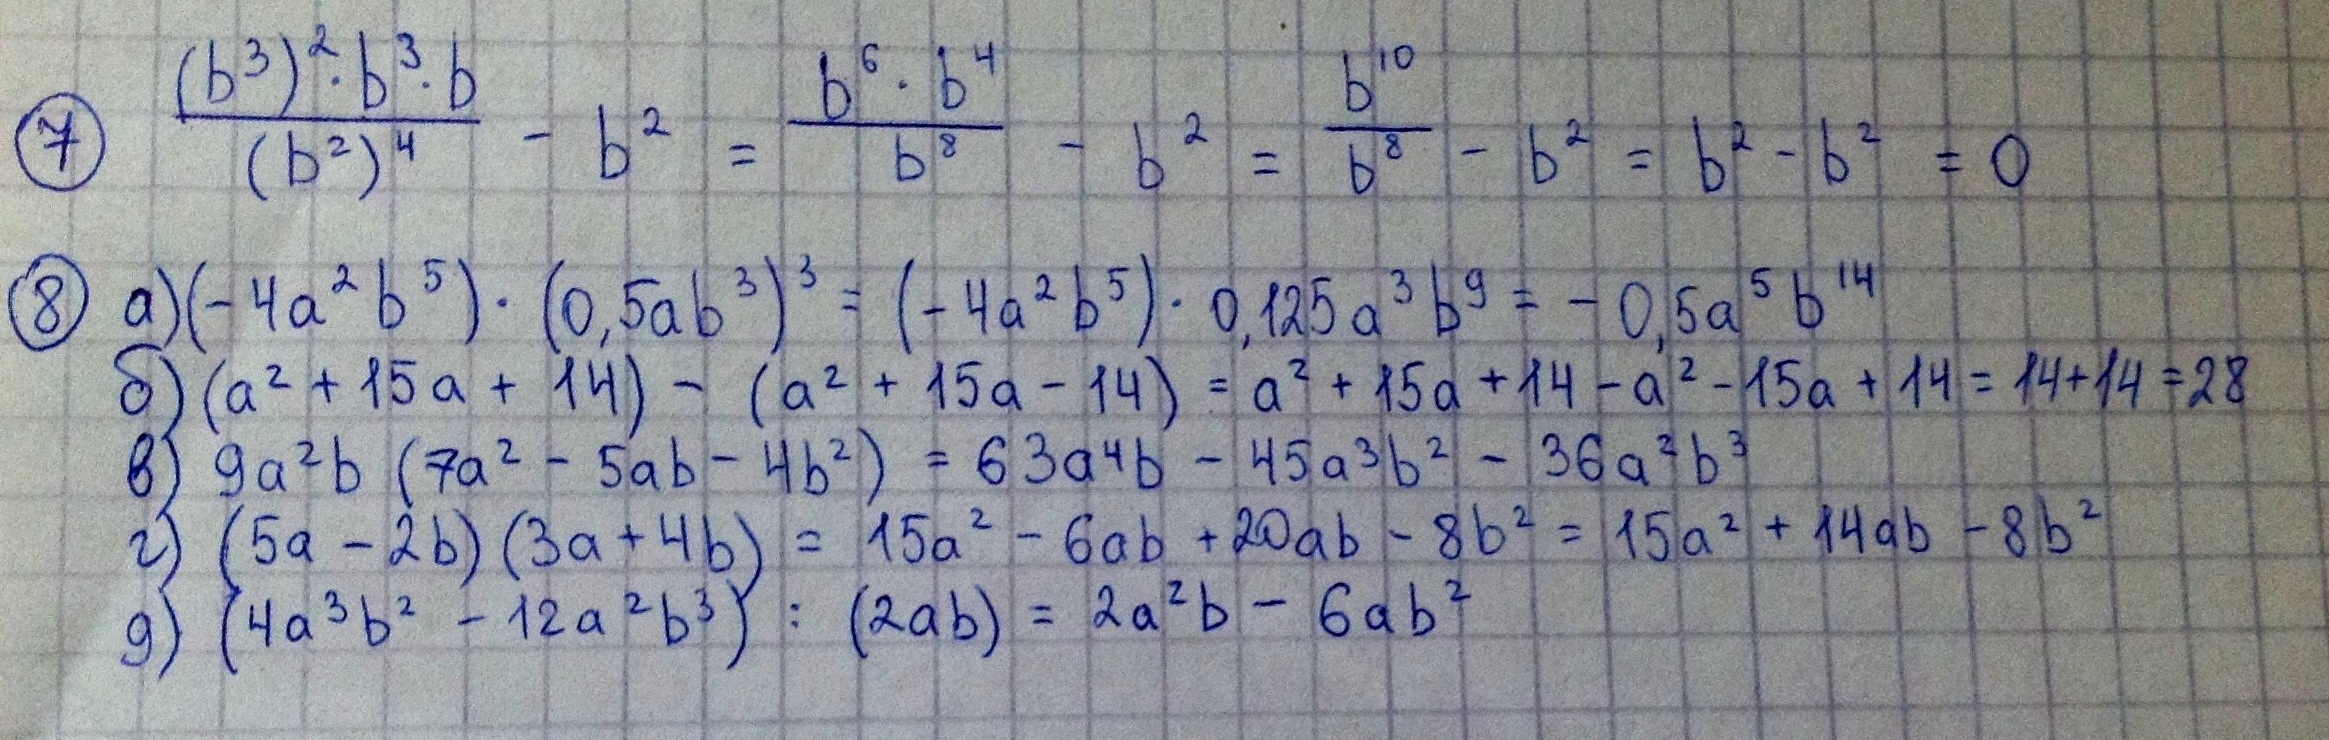 ⑦ \frac{(b³)²·b³·b}{(b²)⁴} - b² = \frac{b⁶·b⁴}{b⁸} - b² = \frac{b¹⁰}{b⁸} - b² = b² - b² = 0
⑧ а) (-4a²b⁵)·(0,5ab³)³ = (-4a²b⁵)·0,125a³b⁹ = -0,5a⁵b¹⁴
б) (a² + 15a + 14) - (a² + 15a - 14) = a² + 15a + 14 - a² - 15a + 14 = 14 + 14 = 28
в) 9a²b (7a² - 5ab - 4b²) = 63a⁴b - 45a³b² - 36a²b³
г) (5a - 2b) (3a + 4b) = 15a² - 6ab + 20ab - 8b² = 15a² + 14ab - 8b²
д) (4a³b² - 12a²b³) : (2ab) = 2a²b - 6ab²